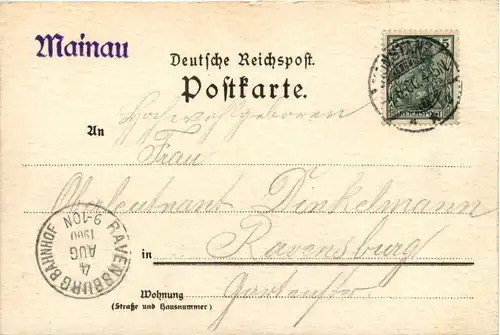 Mainau
Deutsche Reichspost.
Postkarte.
5
REICHSPOST
An
Hochwohlgeboren
Frau
Oberleutnant Dinkelmann
in Ravensburg
Gartenstr.
Wohnung
(Straße und Hausnummer)
RAVENSBURG BAHNHOF
4
AUG
1900
9-10N
KONSTANZ